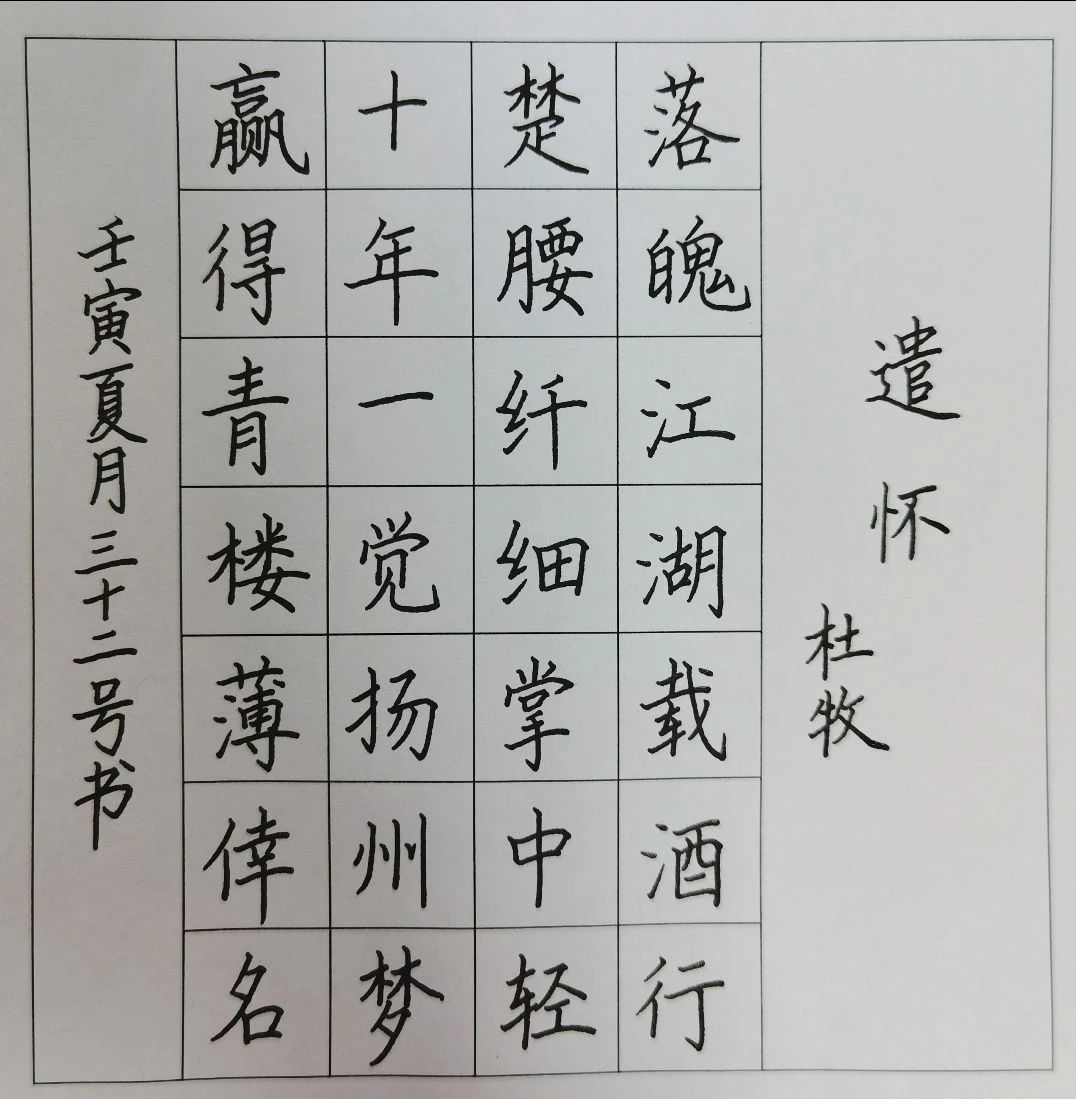 遣怀
杜牧
落魄江湖载酒行
楚腰纤细掌中轻
十年一觉扬州梦
赢得青楼薄倖名
壬寅夏月三十二号书